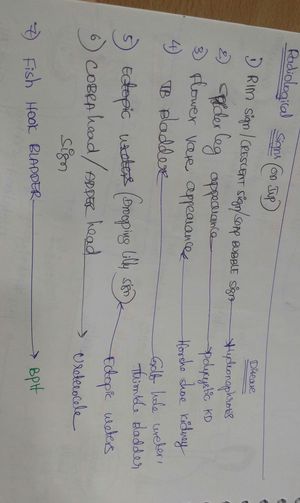 Radiological Sign (on IVP)
Disease
1) RIM sign/CRESCENT sign/SOAP BUBBLE sign → Hydronephrosis
2) Spider leg appearance → Polycystic KD
3) Flower vase appearance → Horse shoe kidney
4) TB Bladder → Golf hole ureter, Thimble bladder
5) Ectopic ureter (Drooping lily sign) → Ectopic ureters
6) COBRA head/ADDER head sign → Ureterocele
7) FISH HOOK BLADDER → BPH